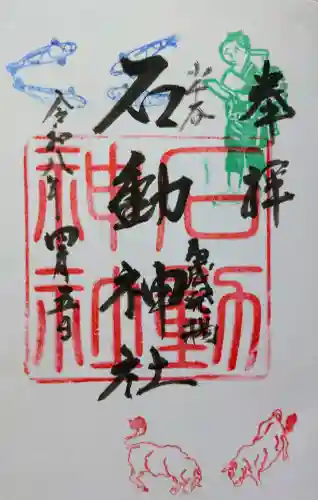 奉拝
小千谷
石動神社
令和八年
四月五日
石動
神社